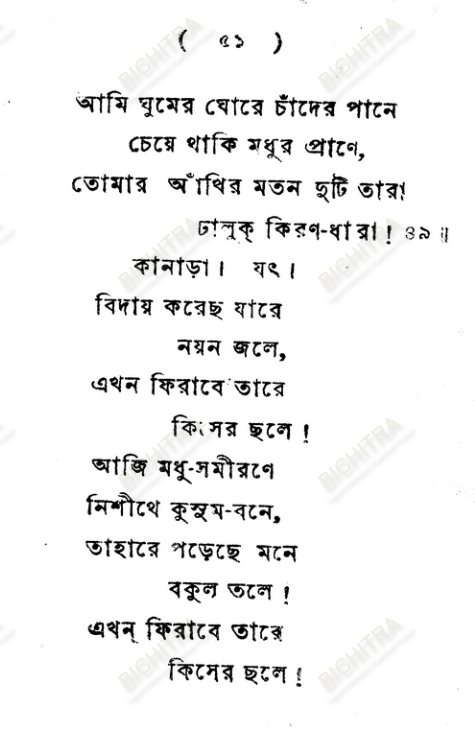 ( ৫১ )
আমি ঘুমের ঘোরে চাঁদের পানে
চেয়ে থাকি মধুর প্রাণে,
তোমার আঁখির মতন দুটি তারা
ঢালুক্ কিরণ-ধারা! ৪৯॥
কানাড়া। যৎ।
বিদায় করেছ যারে
নয়ন জলে,
এখন ফিরাবে তারে
কিসের ছলে!
আজি মধু-সমীরণে
নিশীথে কুসুম-বনে,
তাহারে পড়েছে মনে
বকুল তলে!
এখন্ ফিরাবে তারে
কিসের ছলে!
BICHITRA